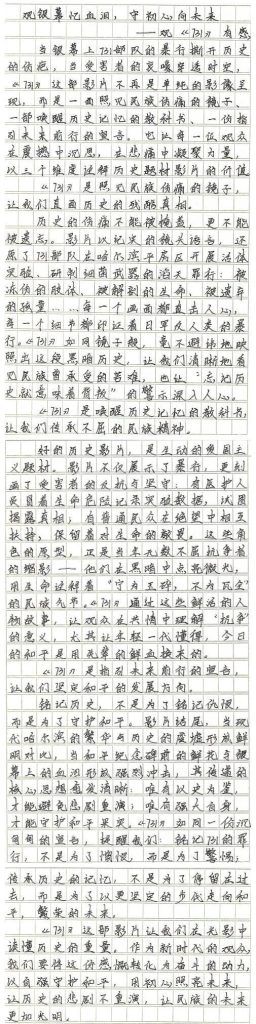 观银幕忆血泪，守初心向未来
——观《731》有感
当银幕上731部队的暴行撕开历史
的伤疤，当受害者的哀嚎穿透时空，
《731》这部影片不再是单纯的影像呈
现，而是一面照见民族伤痛的镜子、
一部唤醒历史记忆的教科书、一份指
引未来前行的宣告。它让每一位观众
在震撼中沉思，在悲痛中凝聚力量，
以三个维度诠释历史题材影片的价值
《731》是照见民族伤痛的镜子，
让我们直面历史的残酷真相。
历史的伤痛不能被掩盖，更不能
被遗忘。影片以纪实的镜头语言，还
原了731部队在哈尔滨平房区开展活体
实验、研制细菌武器的滔天罪行：被
冻伤的肢体、被解剖的生命、被遗弃
的孩童……每一个画面都直击人心，
每一个细节都印证着日军反人类的暴
行。《731》如同镜子般，毫不避讳地映
照出这段黑暗历史，让我们清晰地看
见民族曾承受的苦难，也让“忘记历
史就意味着背叛”的警示深入人心。
《731》是唤醒历史记忆的教科书，
让我们传承不屈的民族精神。
好的历史影片，是生动的爱国主
义题材。影片不仅展示了暴行，更刻
画了受害者的反抗与坚守：有医护人
员冒着生命危险记录实验数据，试图
揭露真相；有普通民众在绝望中相互
扶持，保留着对生命的敬畏。这些角
色的原型，正是当年无数不屈抗争者
的缩影——他们在黑暗中点亮微光，
用生命诠释着“宁为玉碎，不为瓦全”
的民族气节。《731》通过这些鲜活的人
物故事，让观众在共情中理解“抗争”
的意义，尤其让年轻一代懂得，今日
的和平是用先辈的鲜血换来的。
《731》是指引未来前行的宣告，
让我们坚定和平的发展方向。
铭记历史，不是为了铭记仇恨，
而是为了守护和平。影片结尾，当现
代哈尔滨的繁华与历史的废墟形成鲜
明对比，当和平纪念碑前的鲜花与银
幕上的血泪形成强烈冲击，其传递的
核心思想愈发清晰：唯有以史为鉴，
才能避免悲剧重演；唯有强大自身，
才能守护和平果实。《731》如同一份沉
甸甸的宣告，提醒我们：铭记731的罪
行，不是为了愤恨，而是为了警惕；
传承历史的记忆，不是为了停留在过
去，而是为了以更坚定的步伐走向和
平，繁荣的未来。
《731》这部影片让我们在光影中
读懂历史的重量。作为新时代的观众，
我们要将这份感慨转化为奋斗的动力，
以自强守护和平，用初心照亮未来，
让历史的悲剧不重演，让民族的未来
更加光明。